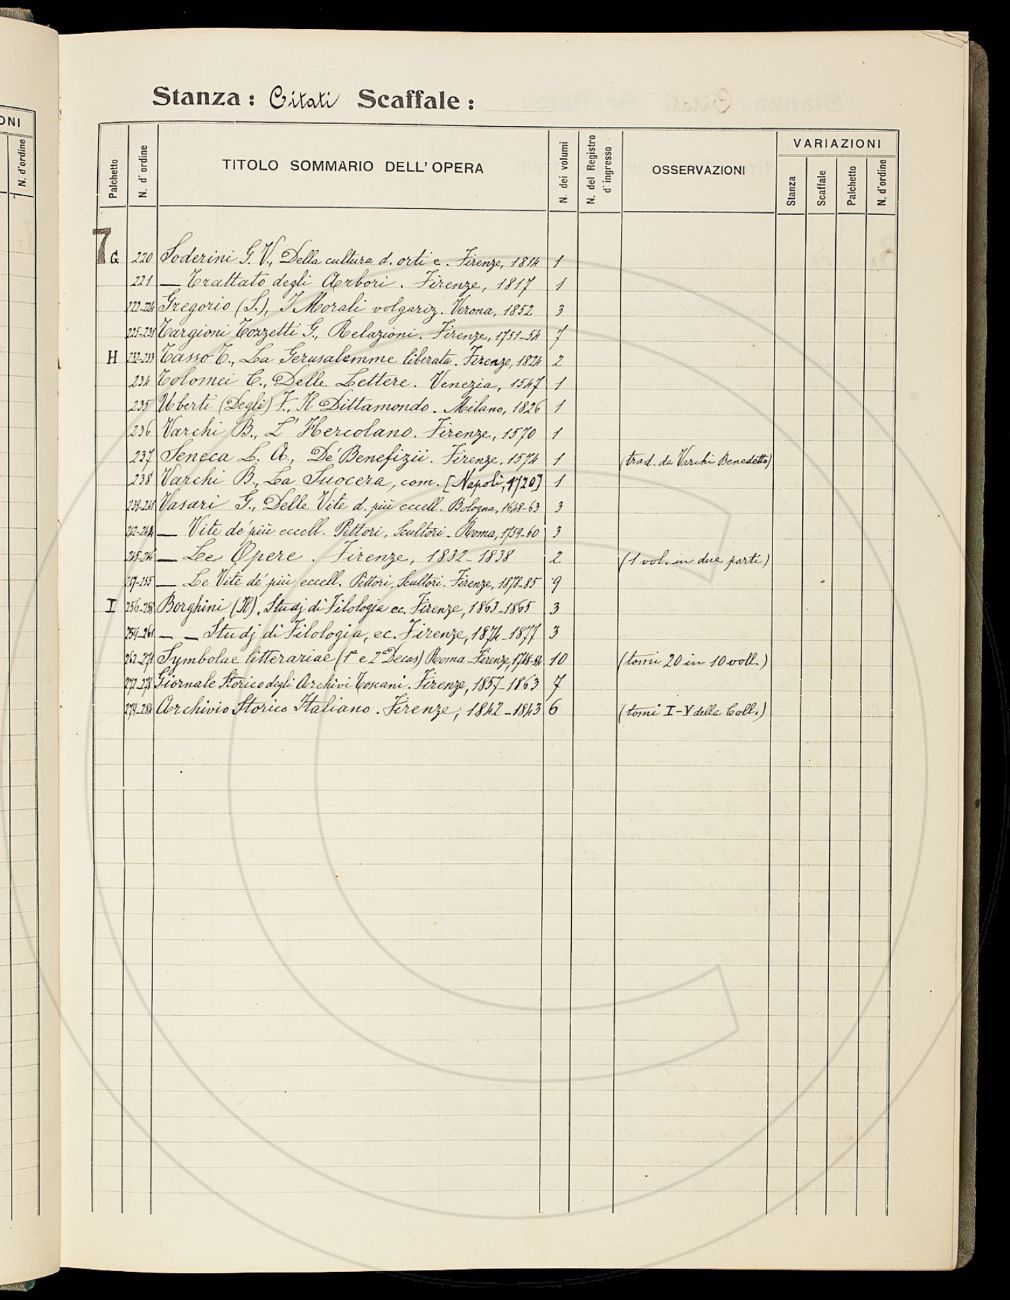 ONI
N. d'ordine
Stanza: Citati Scaffale:
Palchetto N. d'ordine TITOLO SOMMARIO DELL'OPERA N. dei volumi N. del Registro d'ingresso OSSERVAZIONI VARIAZIONI
Stanza Scaffale Palchetto N. d'ordine
7
G 220 Soderini G. V., Della cultura d. orti e. Firenze, 1814 1
221 — Trattato degli Arbori. Firenze, 1817 1
222-224 Gregorio (S.), I Morali volgariz. Verona, 1852 3
225-231 Targioni Tozzetti G., Relazioni. Firenze, 1751-54 7
H 232-233 Tasso T., La Gerusalemme liberata. Firenze, 1824 2
234 Tolomei C., Delle Lettere. Venezia, 1547 1
235 Uberti (Degli) F., Il Dittamondo. Milano, 1826 1
236 Varchi B., L'Hercolano. Firenze, 1570 1
237 Seneca L. A., De' Benefizii. Firenze, 1574 1 (trad. da Varchi Benedetto)
238 Varchi B., La Suocera, com. [Napoli, 1720] 1
239-241 Vasari G., Delle Vite d. più eccell. Bologna, 1648-63 3
242-244 — Vite de' più eccell. Pittori, Scultori. Roma, 1759-60 3
245-246 — Le Opere. Firenze, 1832-1838 2 (1 vol. in due parti)
247-255 — Le Vite de' più eccell. Pittori, Scultori. Firenze, 1878-85 9
I 256-258 Borghini (Il), Studj di Filologia ec. Firenze, 1863-1865 3
259-261 — — Studj di Filologia, ec. Firenze, 1874-1877 3
262-271 Symbolae litterariae (1ª e 2ª Decas) Roma-Firenze, 1748-54 10 (tomi 20 in 10 voll.)
272-278 Giornale Storico degli Archivi Toscani. Firenze, 1857-1863 7
279-284 Archivio Storico Italiano. Firenze, 1842-1843 6 (tomi I-V della Coll.)